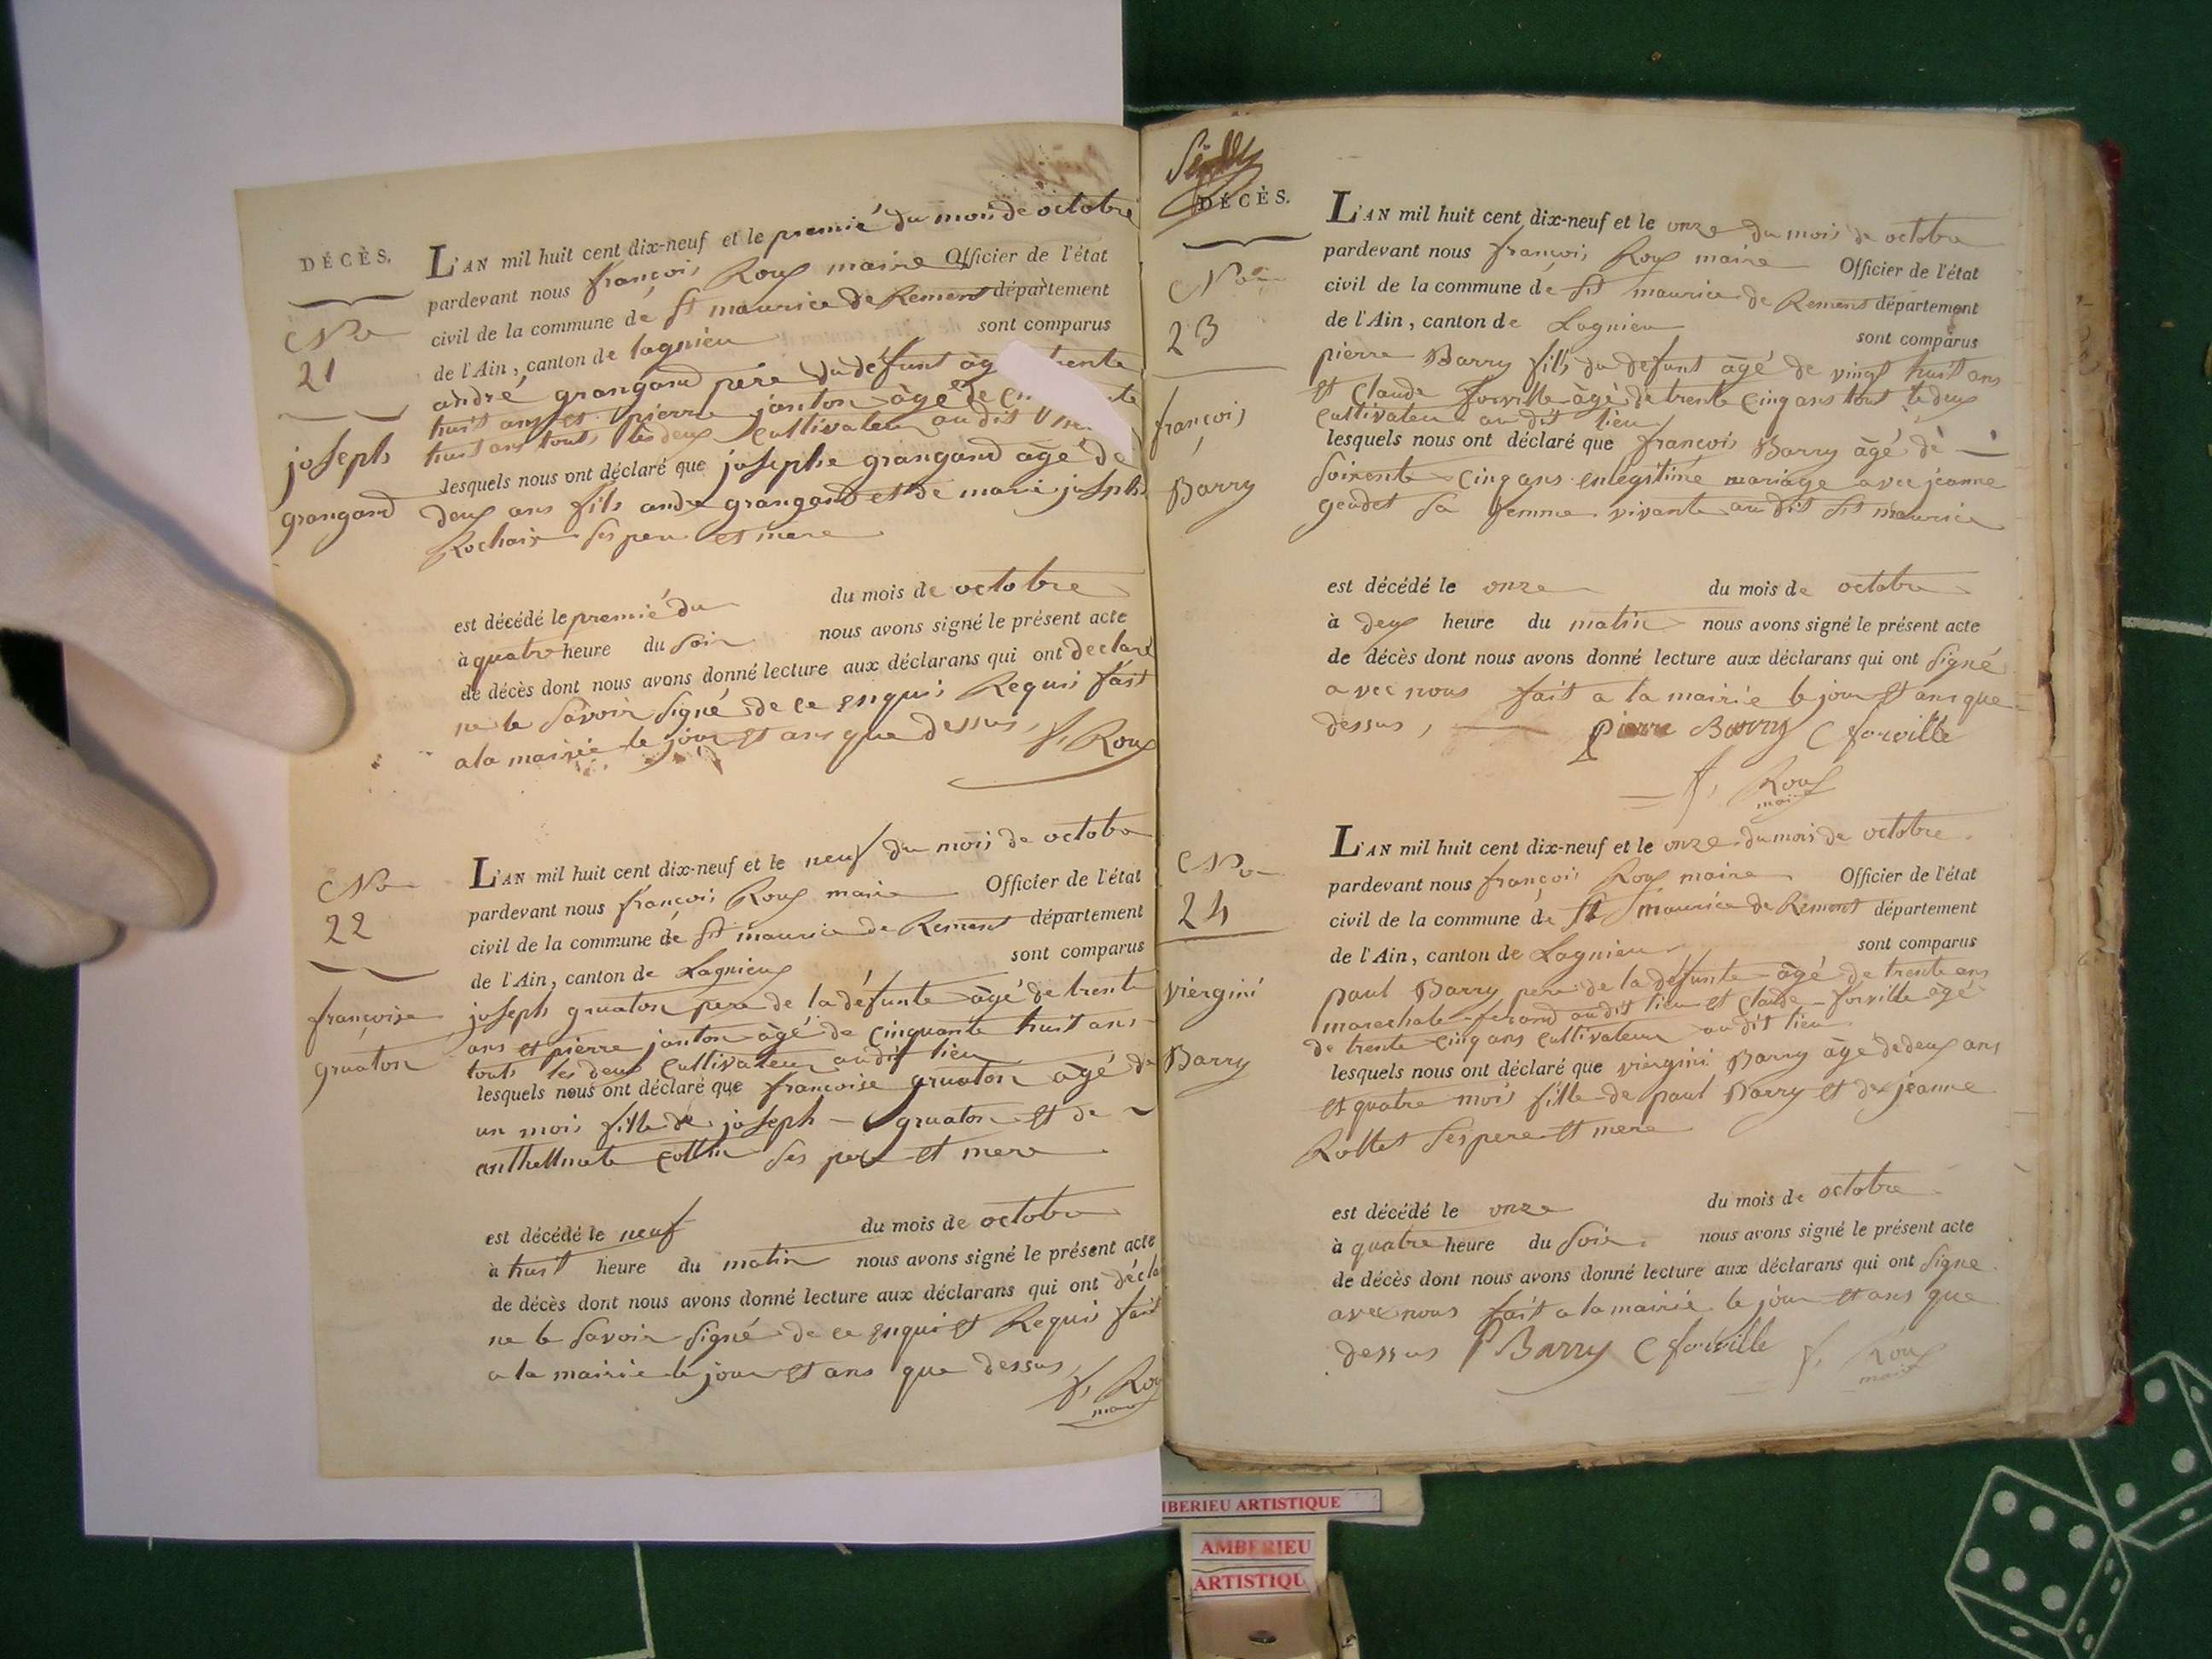 DÉCÈS.
No
21
joseph
grangand
L'AN mil huit cent dix-neuf et le premié du mois de octobre
pardevant nous françois Roux maire Officier de l'état
civil de la commune de St maurice de Remens département
de l'Ain, canton de lagnieu sont comparus
andré grangand père du défunt âg trente
huit ans et pierre janton âgé de
huit ans touts les deux cultivateur audit
lesquels nous ont déclaré que josephe grangand âgé de
deux ans fils andre grangand et de marie joseph
Rochaix ses pere et mere
est décédé le premié du du mois de octobre
à quatre heure du soir nous avons signé le présent acte
de décès dont nous avons donné lecture aux déclarans qui ont déclaré
ne le savoir signé de ce enquis Requis fait
a la mairie le jour et ans que dessus, f, Roux
No
22
françoise
gruaton
L'AN mil huit cent dix-neuf et le neuf du mois de octobre
pardevant nous françois Roux maire Officier de l'état
civil de la commune de St maurice de Remens département
de l'Ain, canton de Lagnieu sont comparus
joseph gruaton pere de la défunte âgé de trente
ans et pierre janton âgé de cinquante huit ans
touts les deux cultivateur audit lieu
lesquels nous ont déclaré que françoise gruaton âgé de
un mois fille de joseph - gruaton et de
ses pere et mere
est décédé le neuf du mois de octobre
à huit heure du matin nous avons signé le présent acte
de décès dont nous avons donné lecture aux déclarans qui ont décla
ne le savoir signé de ce enquis et Requis fait
a la mairie le jour et ans que dessus f, Roux
maire
DÉCÈS.
No
23
françois
Barry
L'AN mil huit cent dix-neuf et le onze du mois de octobre
pardevant nous françois Roux maire Officier de l'état
civil de la commune de St maurice de Remens département
de l'Ain, canton de Lagnieu sont comparus
pierre Barry fils du defunt âgé de vingt huit ans
et Claude forville âgé de trente cinq ans tout le deux
cultivateur audit lieu
lesquels nous ont déclaré que françois Barry âgé de
soixente cinq ans enlegitime mariage avec jeanne
geudet sa femme vivante audit St maurice
est décédé le onze du mois de octobre
à deux heure du matin nous avons signé le présent acte
de décès dont nous avons donné lecture aux déclarans qui ont signé
avec nous fait a la mairie le jour et ans que
dessus, pierre Barry C forville
f, Roux
maire
No
24
viergini
Barry
L'AN mil huit cent dix-neuf et le onze du mois de octobre
pardevant nous françois Roux maire Officier de l'état
civil de la commune de St maurice de Remens département
de l'Ain, canton de Lagnieu sont comparus
paul Barry pere de la défunte âgé de trente ans
marechale ferand audit lieu et Claude - forville âgé
de trente cinq ans cultivateur audit lieu
lesquels nous ont déclaré que viergini Barry âgé de deux ans
et quatre mois fille de paul Barry et de jeanne
Rollet ses pere et mere
est décédé le onze du mois de octobre
à quatre heure du soir nous avons signé le présent acte
de décès dont nous avons donné lecture aux déclarans qui ont signe
avec nous fait a la mairie le jour et ans que
dessus P Barry C forville f, Roux
maire
IBERIEU ARTISTIQUE
AMBERIEU
ARTISTIQU